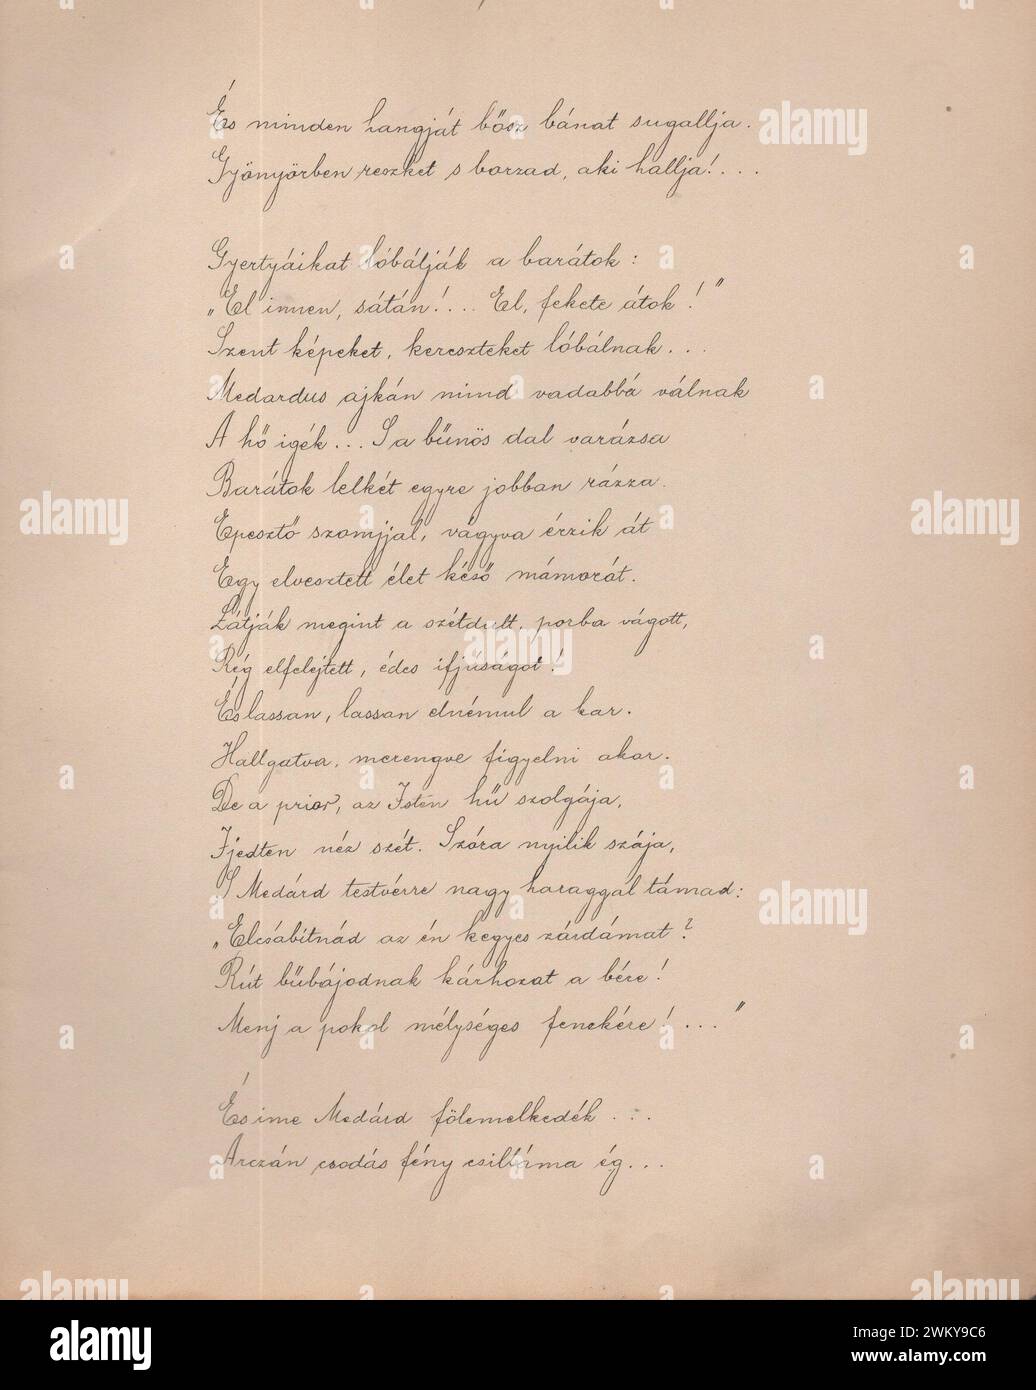 És minden hangját bősz bánat sugallja.
Gyönyörben reszket s borzad, aki hallja!...
Gyertyáikat lóbálják a barátok:
„El innen, sátán!.... El, fekete átok!"
Szent képeket, kereszteket lóbálnak...
Medardus ajkán mind vadabbá válnak
A hő igék... S a bűnös dal varázsa
Barátok lelkét egyre jobban rázza.
Epesztő szomjjal, vágyva érzik át
Egy elvesztett élet késő mámorát.
Látják megint a szétdult, porba vágott,
Rég elfelejtett, édes ifjúságot!
És lassan, lassan elnémul a kar.
Hallgatva, merengve figyelni akar.
De a prior, az Isten hű szolgája,
Ijedten néz szét. Szóra nyilik szája,
S Medárd testvérre nagy haraggal támad:
„Elcsábítnád az én kegyes zárdámat?
Rút bűbájodnak kárhozat a bére!
Menj a pokol mélységes fenekére!..."
És ime Medárd fölemelkedék...
Arczán csodás fény csilláma ég...
alamy
a
alamy
Image ID: 2WKY9C6
www.alamy.com